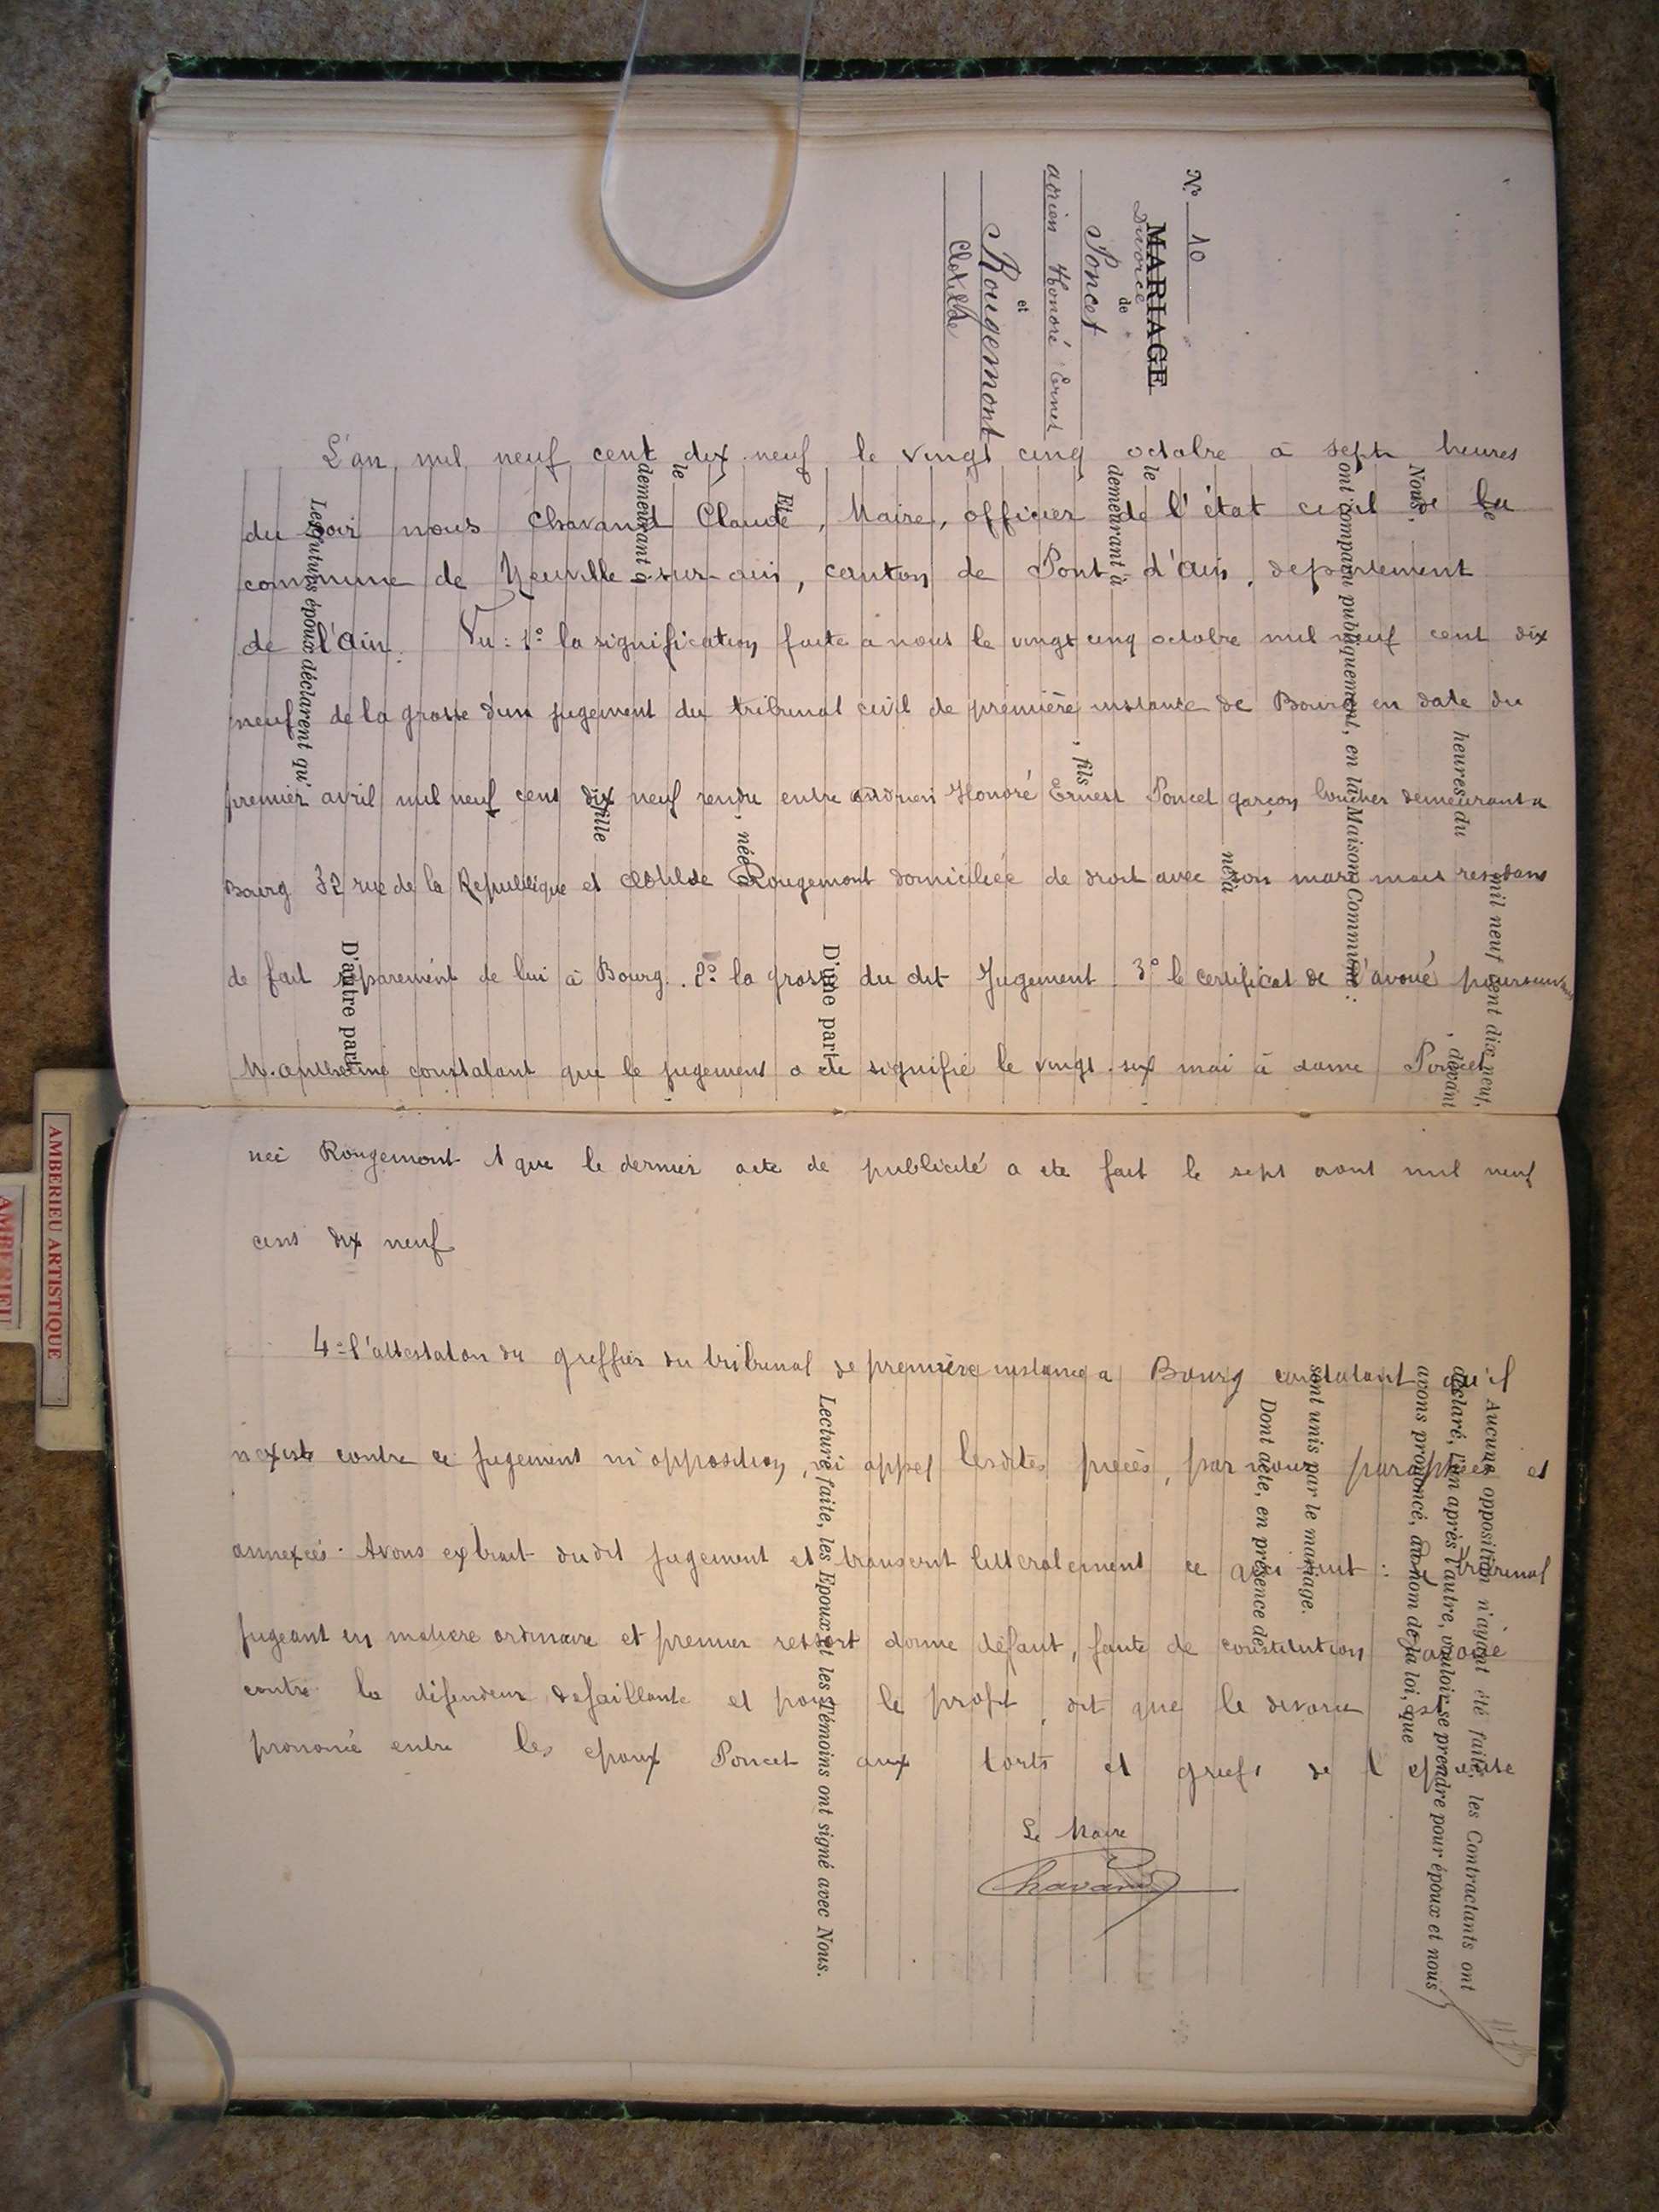 N° 10
MARIAGE
Divorce
de
Poncet
adrien Honoré Ernest
et
Rougemont
Clotilde
L'an mil neuf cent dix neuf le vingt cinq octobre à sept heures
du soir nous Chavand Claude, Maire, officier de l'état civil de la
commune de Neuville-sur-ain, canton de Pont d'Ain, departement
de l'Ain. Vu : 1° la signification faite a nous le vingt cinq octobre mil neuf cent dix
neuf de la grosse d'un jugement du tribunal civil de première instance de Bourg en date du
premier avril mil neuf cent dix neuf rendu entre Adrien Honoré Ernest Poncet garçon boucher demeurant a
Bourg 32 rue de la Republique et Clotilde Rougemont domiciliée de droit avec son mari mais residant
de fait séparement de lui à Bourg. 2° la grosse du dit Jugement 3° le certificat de l'avoué poursuivant
M. constatant que le jugement a ete signifié le vingt six mai à dame Poncet
née Rougemont & que le dernier acte de publicité a ete fait le sept aout mil neuf
cent dix neuf
4° l'attestation du greffier du tribunal de première instance a Bourg constatant qu'il
n'existe contre ce jugement ni opposition, ni appel lesdites pièces, par nous paraphées et
annexées. Avons extrait dudit jugement et transcrit litteralement ce qui suit : Le Tribunal
jugeant en matiere ordinaire et premier ressort donne défaut, faute de constitution d'avoué
contre la défendeur defaillante et pour le profit, dit que le divorce est
prononcé entre les epoux Poncet aux torts et griefs de l epouse
Le Maire
Chavand
mil neuf cent dix neuf,
le
heures du
, devant
Nous,
ont comparu publiquement, en la Maison Commune :
né à
le
demeurant à
, fils
D'une part
Et
, née à
le
demeurant à
fille
D'autre part
Les futurs époux déclarent qu'
Aucune opposition n'ayant été faite, les Contractants ont
déclaré, l'un après l'autre, vouloir se prendre pour époux et nous
avons prononcé, au nom de la loi, que
sont unis par le mariage.
Dont acte, en présence de
Lecture faite, les Epoux et les Témoins ont signé avec Nous.
AMBERIEU ARTISTIQUE
AMBERIEU